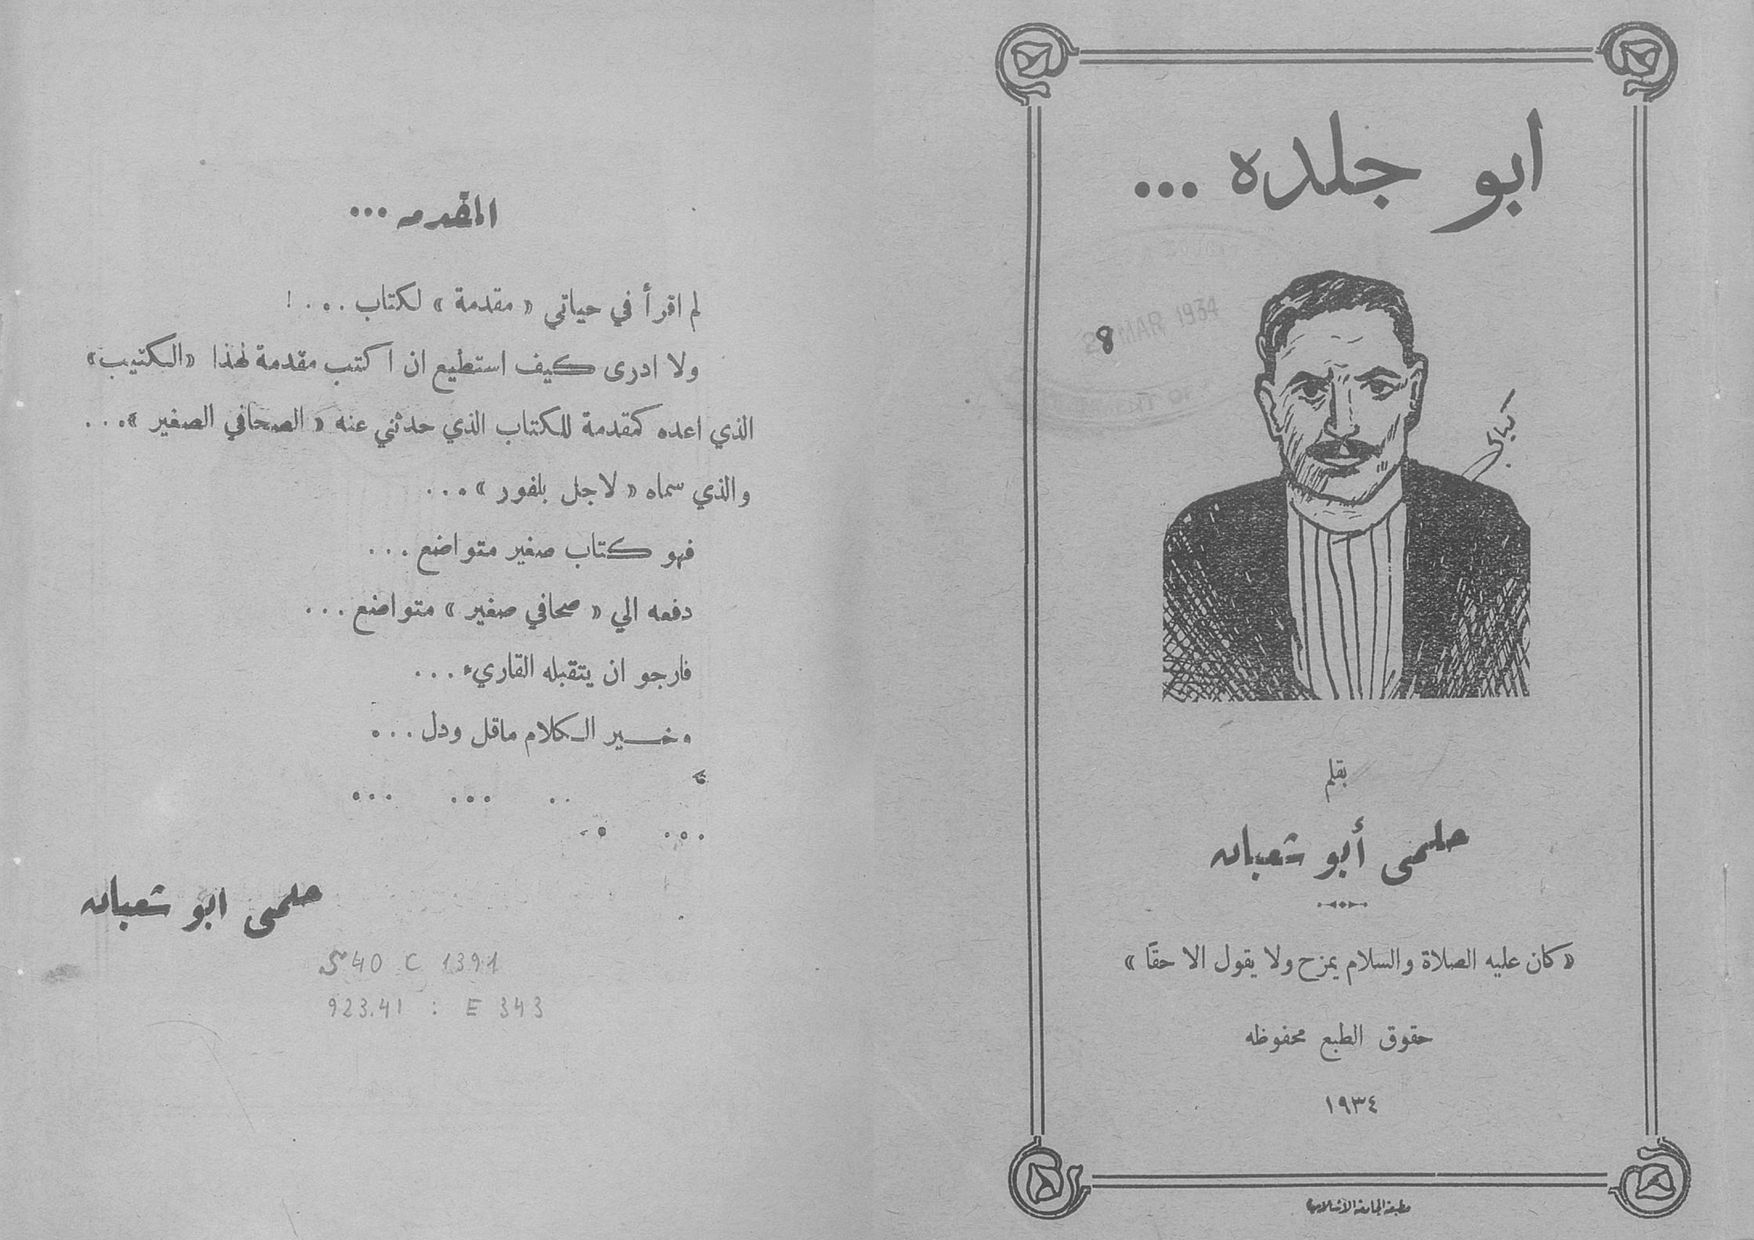 ابو جلده ...
28 MAR 1934
8
بقلم
حلمى أبو شعبان
«كان عليه الصلاة والسلام يمزح ولا يقول الا حقًا»
حقوق الطبع محفوظه
١٩٣٤
مطبعة الجامعة الاسلامية
المقدمه ...
لم اقرأ في حياتي «مقدمة» لكتاب ... !
ولا ادرى كيف استطيع ان اكتب مقدمة لهذا «الكتيب»
الذي اعده كمقدمة للكتاب الذي حدثني عنه «الصحافي الصغير» ...
والذي سماه «لاجل بلفور» ...
فهو كتاب صغير متواضع ...
دفعه الي «صحافي صغير» متواضع ...
فارجو ان يتقبله القاريء ...
وخير الكلام ماقل ودل ...
حلمى ابو شعبان
S40 C 1391
923.41 : E 343